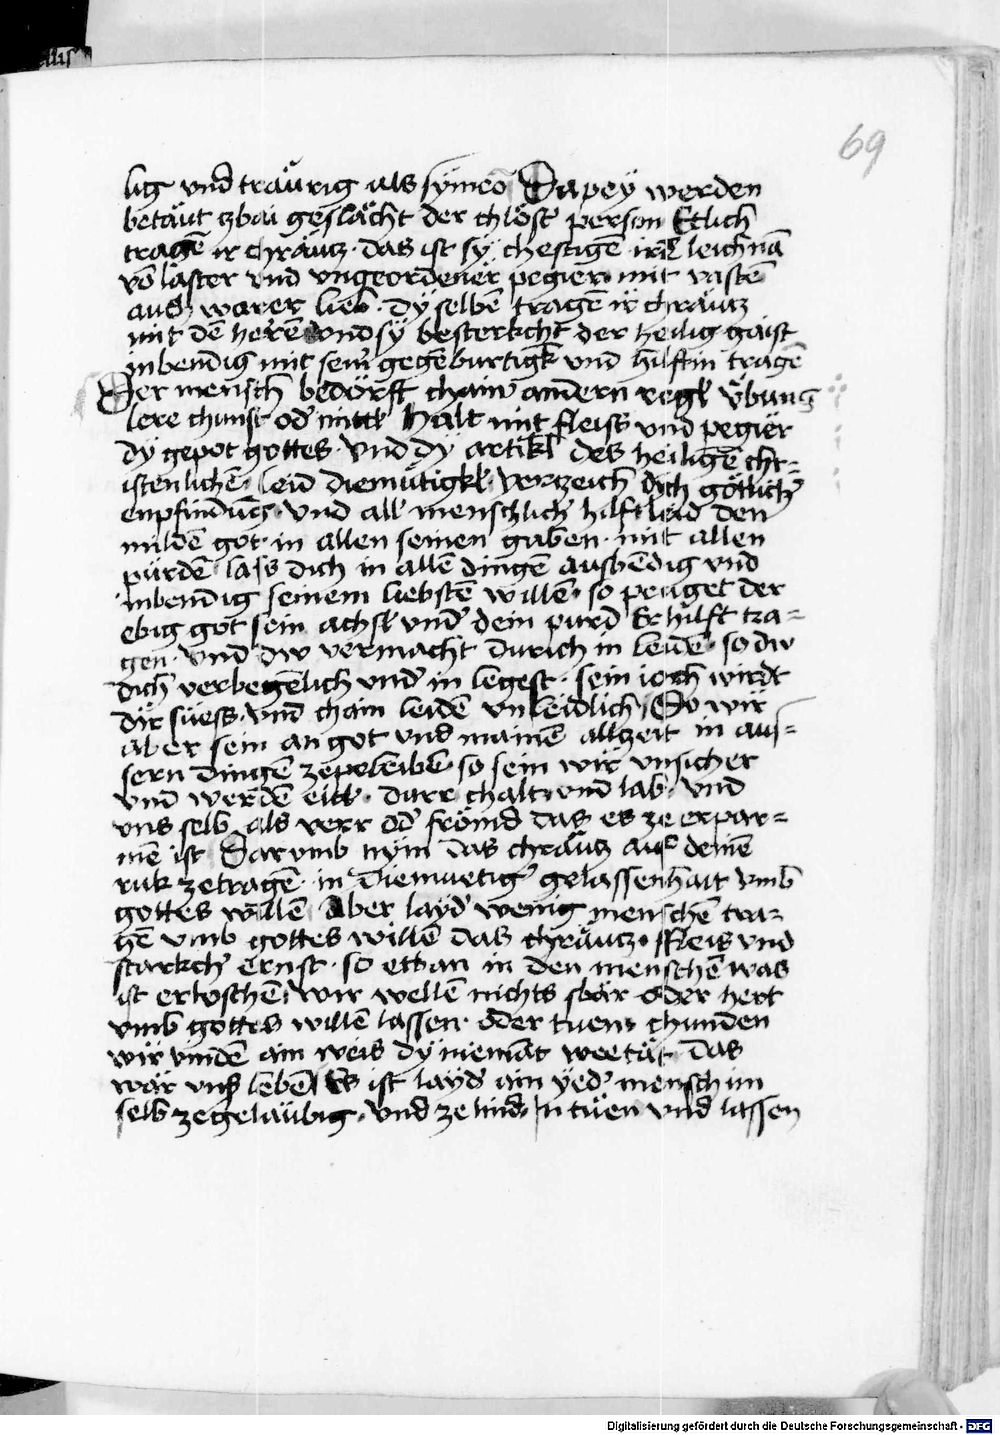 69
lig vnd träurig als sÿmeō Dapeÿ werden
betäut zbai geslächt der chlöst' person Etlich
tragē ir chräutz · das ist sÿ chestigē irn leichnā
vō laster vnd vngeordener pegier mit vastē
aus warer lieb · dÿ selbē tragē ir chräutz
mit dē herēn vnd sÿ besterkcht der heilig gaist
inbendig mit sein' gegēburtigk' vnd hilft in tragē
Der mensch bedorft chain' andern regl vbung
lere chunst od' mittl halt mit fleiss vnd pegier
dÿ gepot gottes · vnd dÿ artikl des heiligē chr=
istenlichē · leid diemütigkl' verzeich dich götlich'
enpfindūg · vnd all' menschlich' hilf leid den
mildē got · in allen seinen gaben · mit allen
pürdē lass dich in allē dingē ausbēdig vnd
inbendig seinem liebstē willē · so peuget der
ebig got sein achsl vnd' dein purd Er hilft tra=
gen · vnd dw vermacht durich in leidē · so dw
dich verbegēlich vnd' in legest · sein ioch wirdt
dir süess · vnd chain leidē vnleidlich So wir
aber sein an got vnd mainē allzeit in aus=
sern dingē zepeleibē so sein wir vnsicher
vnd werdē eitl · durr chalt vnd lab · vnd
vns selb als verr od' frömd das es ze erpar=
mē ist Darumb nÿm das chräutz auf deinē
ruk zetragē · in diemuetig' gelassenhait vmb
gottes willē Aber layd' wenig menschē tra=
gē vmb gottes willē das chräutz · fleis vnd
starkch' ernst · so etban in den menschē was
ist erloschē · wir wellē nichts sbär oder hert
vmb gottes willē lassen · oder tuen · chunden
wir vindē ain weis dÿ niemāt wee tät das
wär vns lebē Es ist layd' ain ÿed' mensch im
selb zegeläubig · vnd ze lind · In tuen vnd lassen
Digitalisierung gefördert durch die Deutsche Forschungsgemeinschaft - DFG